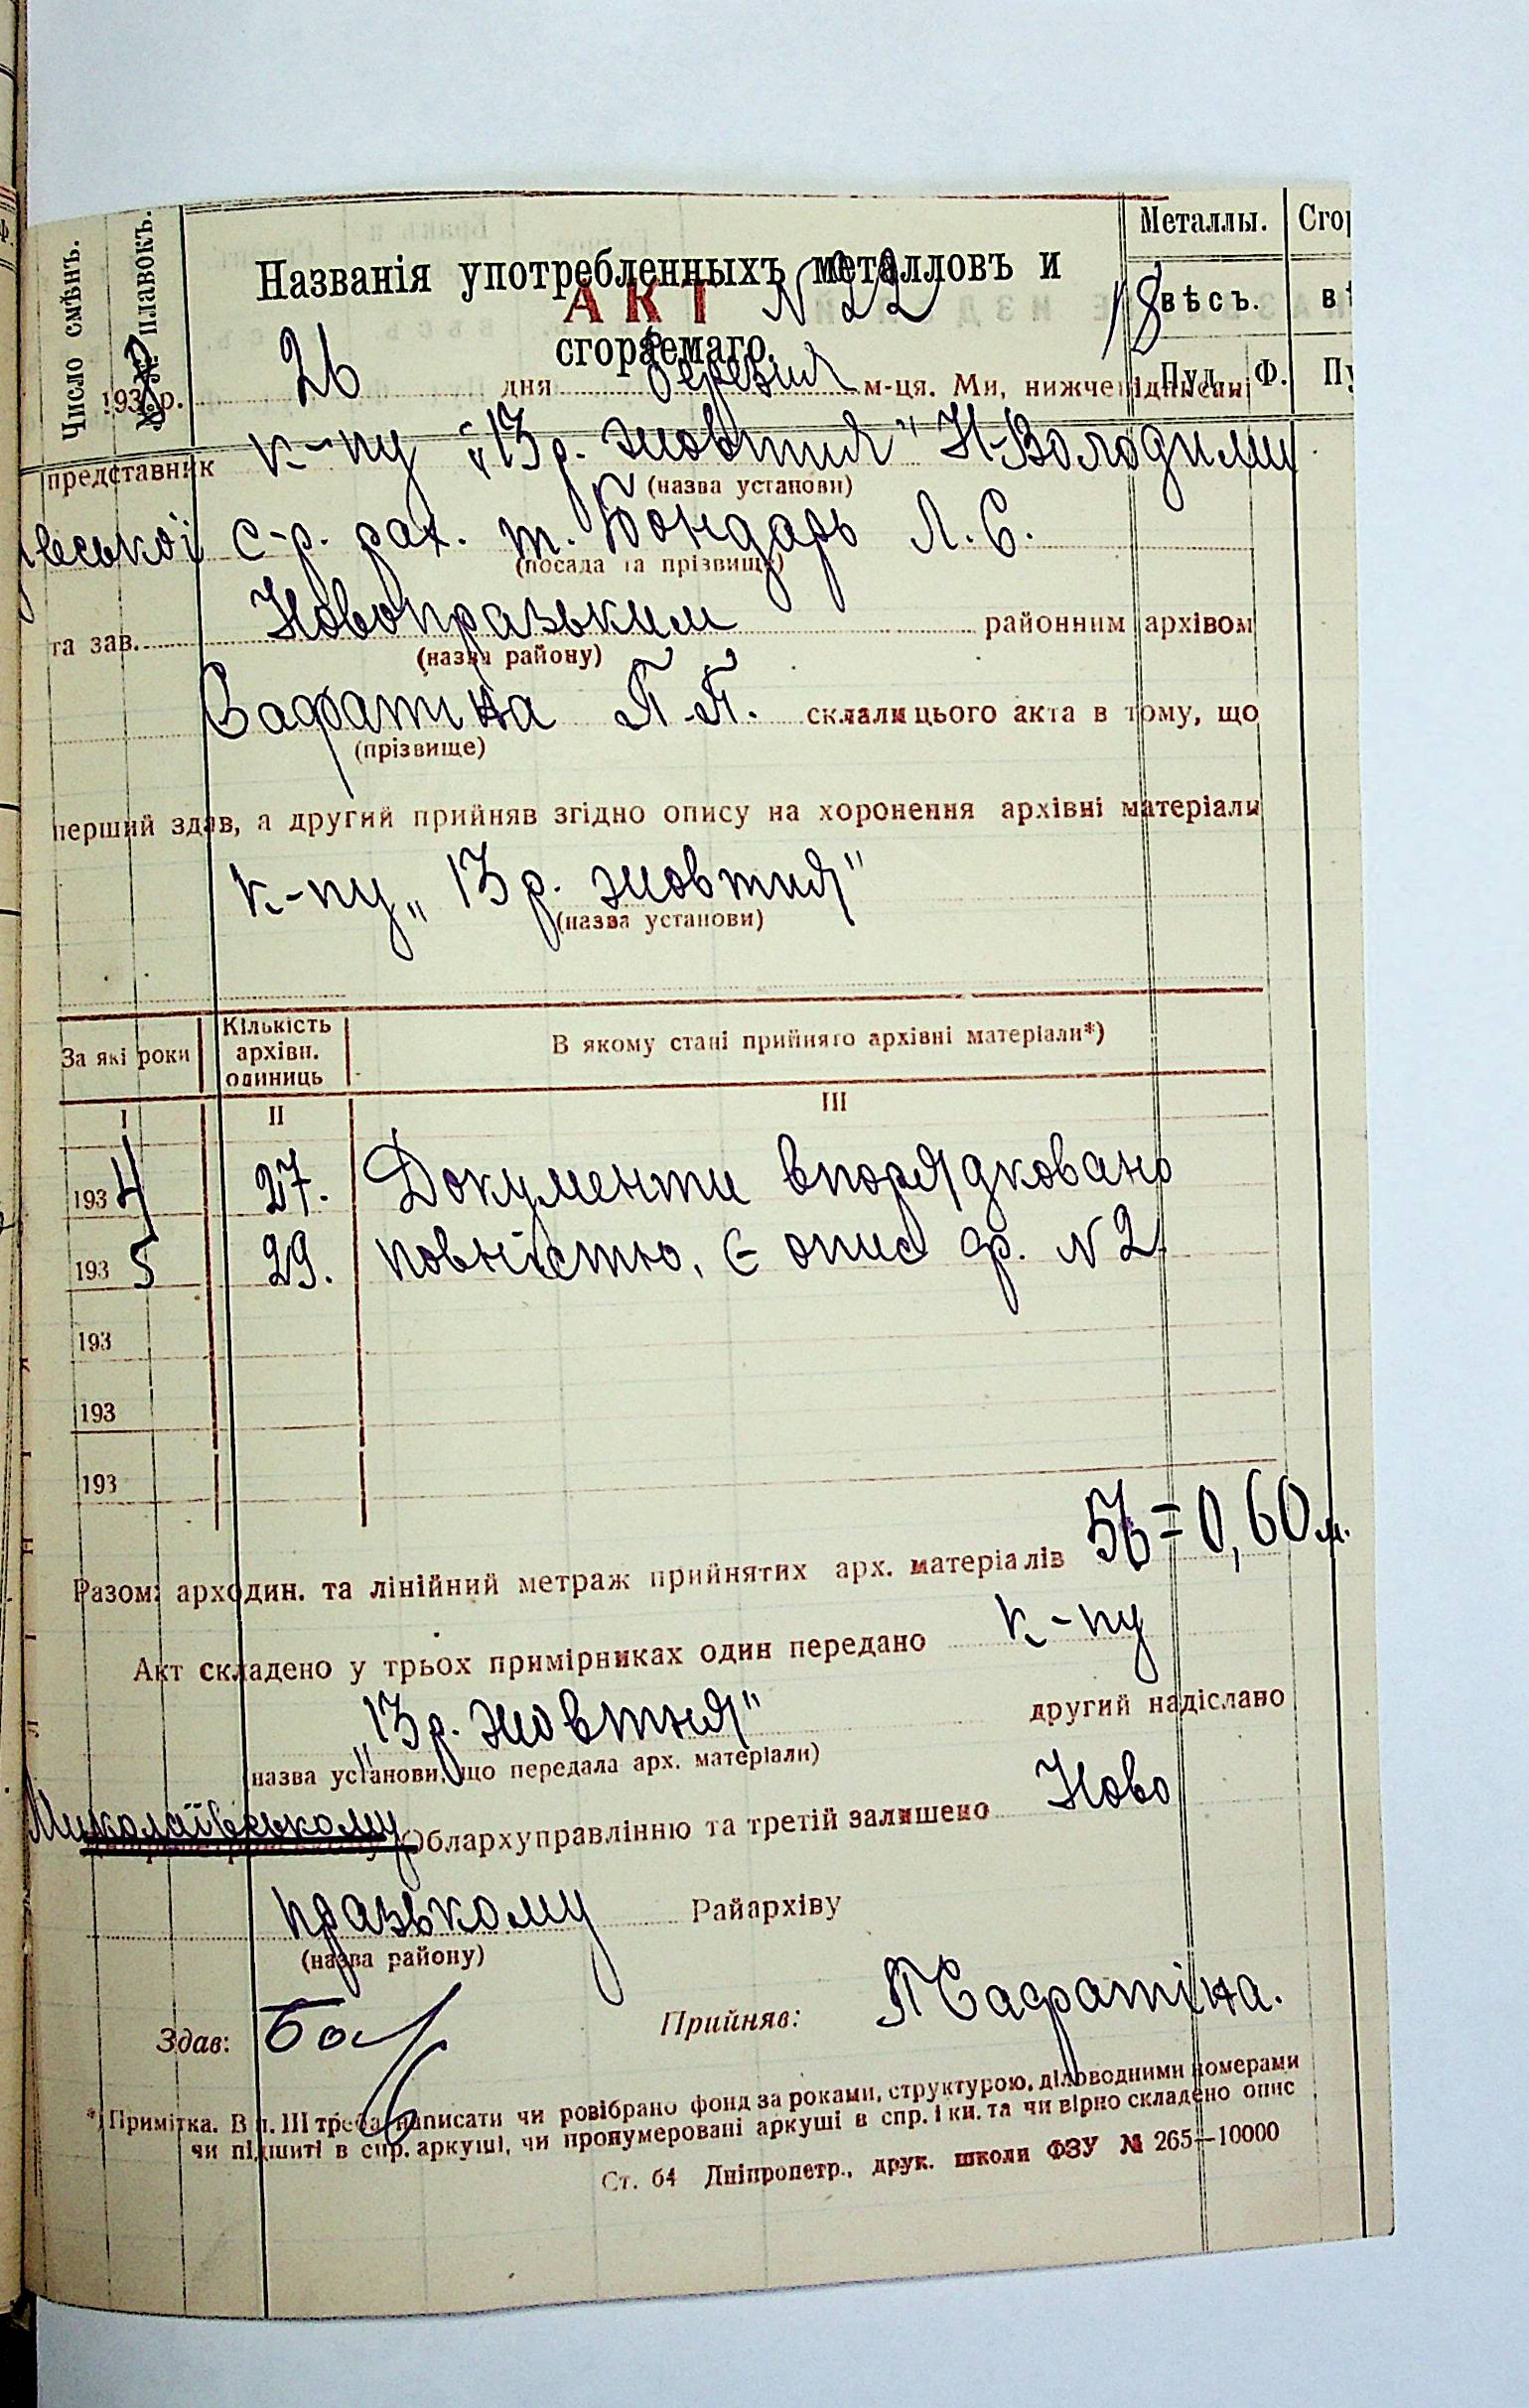 Число смѣнъ.
№№ плавокъ.
Названія употребленныхъ металловъ и
сгораемаго.
Металлы.
вѣсъ.
Пуд. Ф.
АКТ N 22
18
193 р. 26 дня березня м-ця. Ми, нижчепідписані
представник к-пу "13 р. жовтня" Н-Володими
(назва установи)
рівської с-р. рах. т. Бондарь Л. Є.
(посада та прізвище)
та зав. Новопразьким районним архівом
(назва району)
Сафатіна П. П. склали цього акта в тому, що
(прізвище)
перший здав, а другий прийняв згідно опису на хоронення архівні матеріали
к-пу „13 р. жовтня"
(назва установи)
За які роки
Кількість архівн. одиниць
В якому стані прийнято архівні матеріали*)
I II III
1934 27. Документи впорядковано
1935 29. повністю, є опис ф. N 2
193
193
193
Разом: арходин. та лінійний метраж прийнятих арх. матеріалів 56 = 0,60 м.
Акт складено у трьох примірниках один передано к-пу
„13 р. жовтня" другий надіслано
назва установи, що передала арх. матеріали)
Миколаївському Облархуправлінню та третій залишено Ново
празькому Райархіву
(назва району)
Здав: Прийняв: ПСафатіна.
*) Примітка. В п. III треба написати чи розібрано фонд за роками, структурою, діловодними номерами
чи підшиті в спр. аркуші, чи пронумеровані аркуші в спр. і кн. та чи вірно складено опис
Ст. 64 Дніпропетр., друк. школи ФЗУ № 265—10000